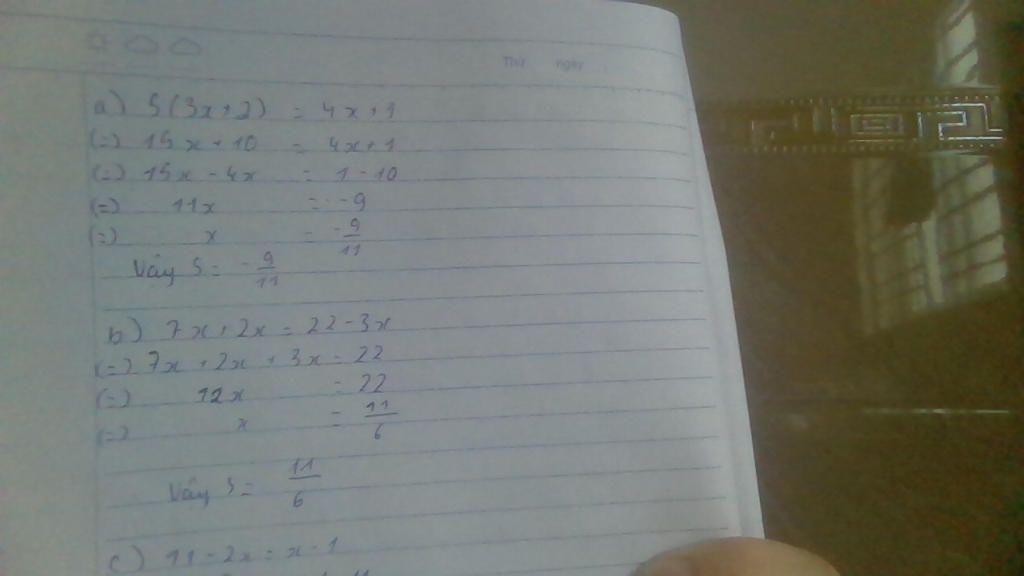 Thứ ngày
a) 5(3x+2) = 4x+1
(=) 15x+10 = 4x+1
(=) 15x-4x = 1-10
(=) 11x = -9
(=) x = -9/11
Vậy S = -9/11
b) 7x+2x = 22-3x
(=) 7x+2x+3x = 22
(=) 12x = 22
(=) x = 11/6
Vậy S = 11/6
c) 11-2x = x-1